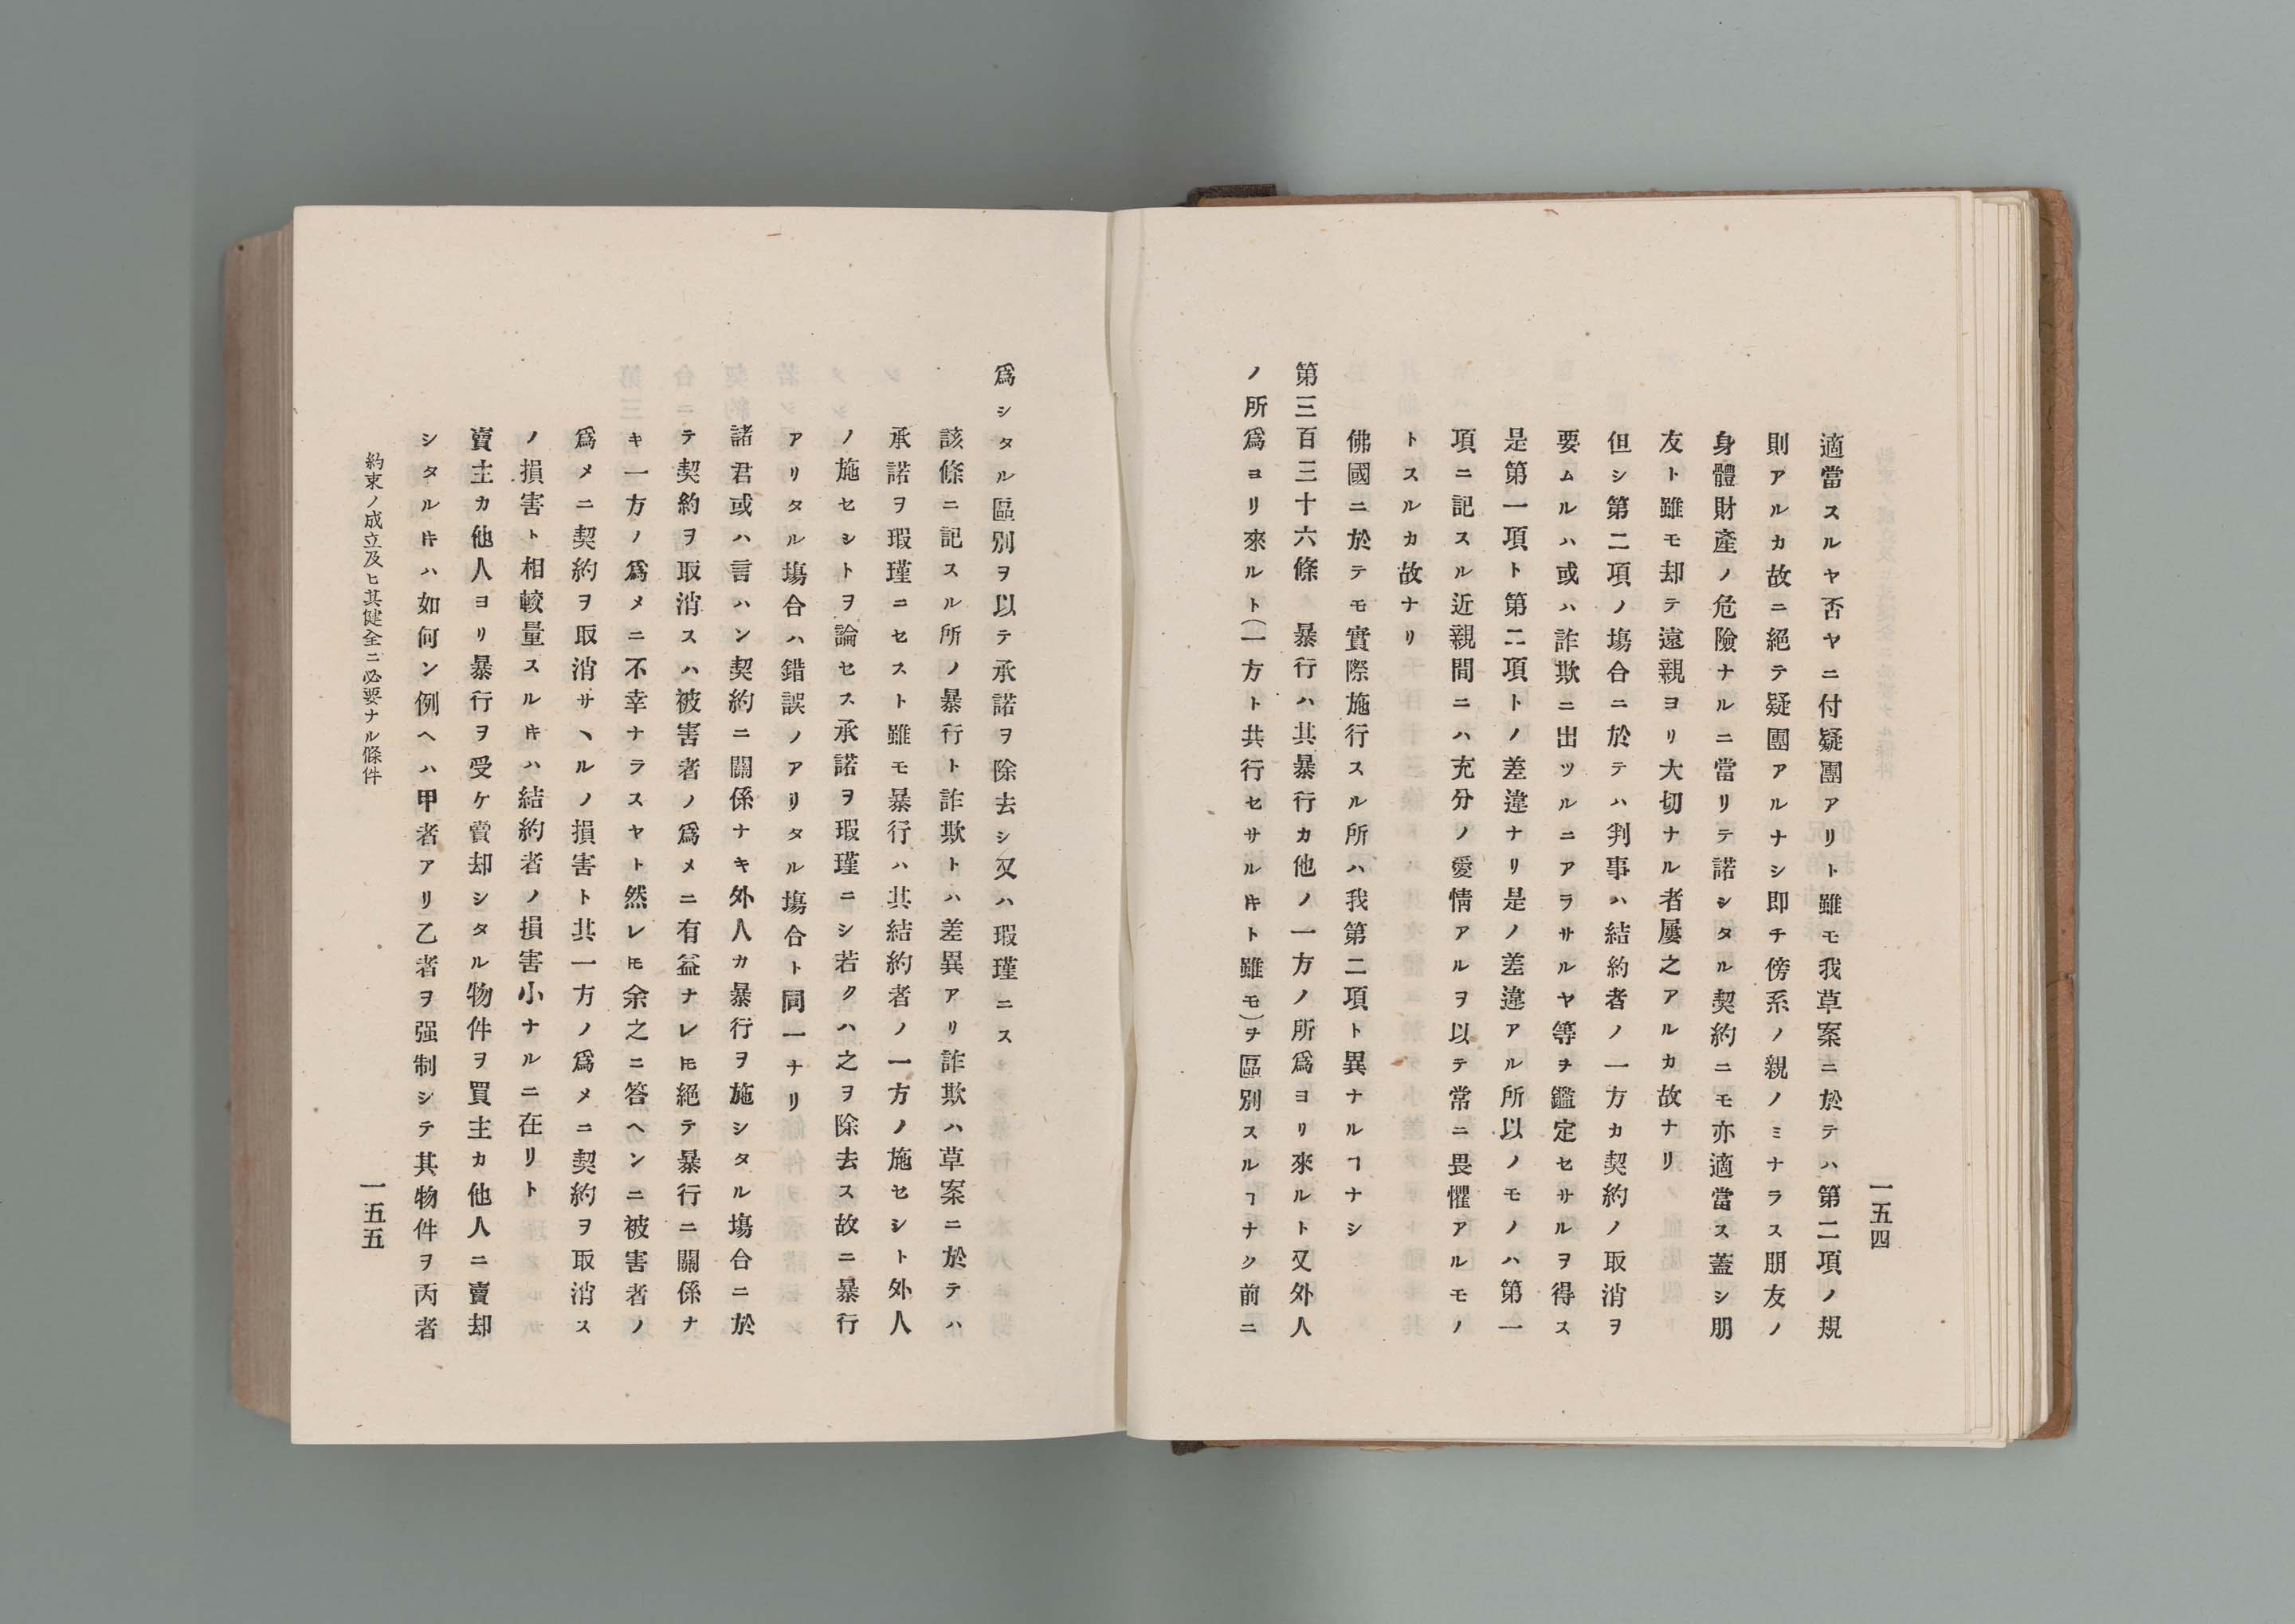 一五四
適當スルヤ否ヤニ付疑團アリト雖モ我草案ニ於テハ第二項ノ規
則アルカ故ニ絕テ疑團アルナシ即チ傍系ノ親ノミナラス朋友ノ
身體財產ノ危險ナルニ當リテ諾シタル契約ニモ亦適當ス蓋シ朋
友ト雖モ却テ遠親ヨリ大切ナル者屢之アルカ故ナリ
但シ第二項ノ塲合ニ於テハ判事ハ結約者ノ一方カ契約ノ取消ヲ
要ムルハ或ハ詐欺ニ出ツルニアラサルヤ等ヲ鑑定セサルヲ得ス
是第一項ト第二項トノ差違ナリ是ノ差違アル所以ノモノハ第一
項ニ記スル近親間ニハ充分ノ愛情アルヲ以テ常ニ畏懼アルモノ
トスルカ故ナリ
佛國ニ於テモ實際施行スル所ハ我第二項ト異ナルヿナシ
第三百三十六條　暴行ハ其暴行カ他ノ一方ノ所爲ヨリ來ルト又外人
ノ所爲ヨリ來ルト(一方ト共行セサルㇳキト雖モ)ヲ區別スルヿナク前ニ
爲シタル區別ヲ以テ承諾ヲ除去シ又ハ瑕瑾ニス
該條ニ記スル所ノ暴行ト詐欺トハ差異アリ詐欺ハ草案ニ於テハ
承諾ヲ瑕瑾ニセスト雖モ暴行ハ其結約者ノ一方ノ施セシト外人
ノ施セシトヲ論セス承諾ヲ瑕瑾ニシ若クハ之ヲ除去ス故ニ暴行
アリタル塲合ハ錯誤ノアリタル塲合ト同一ナリ
諸君或ハ言ハン契約ニ關係ナキ外人カ暴行ヲ施シタル塲合ニ於
テ契約ヲ取消スハ被害者ノ爲メニ有益ナレㇳモ絕テ暴行ニ關係ナ
キ一方ノ爲メニ不幸ナラスヤト然レㇳモ余之ニ答ヘンニ被害者ノ
爲メニ契約ヲ取消サヽルノ損害ト其一方ノ爲メニ契約ヲ取消ス
ノ損害ト相較量スルㇳキハ結約者ノ損害小ナルニ在リト
賣主カ他人ヨリ暴行ヲ受ケ賣却シタル物件ヲ買主カ他人ニ賣却
シタルㇳキハ如何ン例ヘハ甲者アリ乙者ヲ强制シテ其物件ヲ丙者
約束ノ成立及ヒ其健全ニ必要ナル條件
一五五